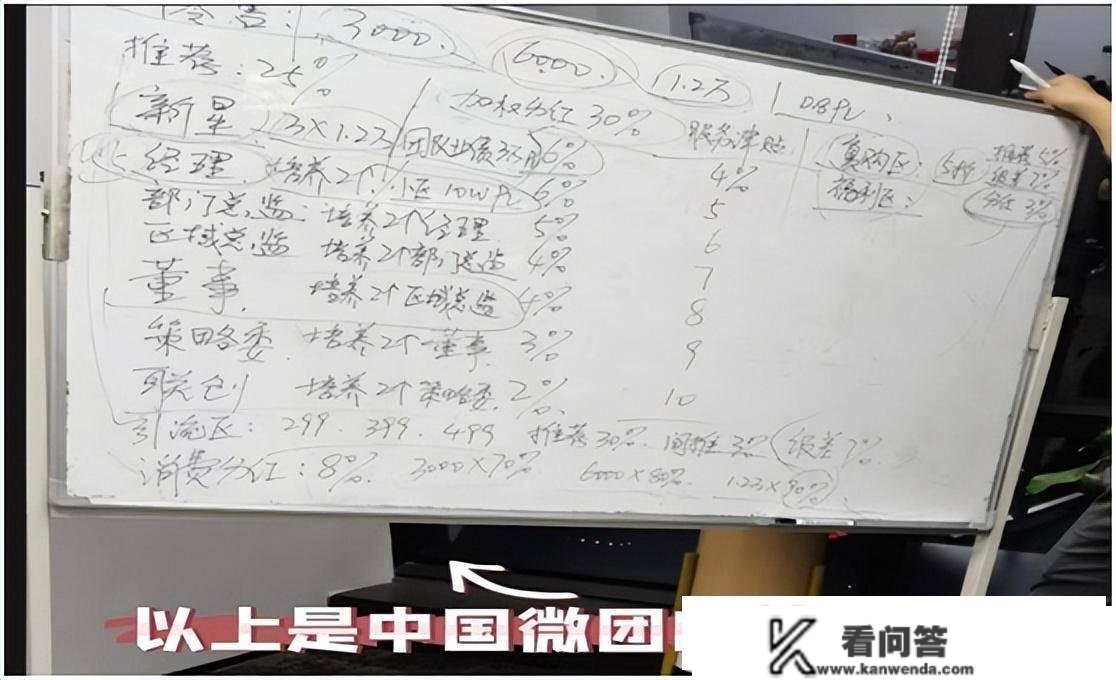 3000. 6000. 1.2万 0.8PV、
推荐:25%
新星 3×1.2万 团队业绩 6% 加权分红30% 服务津贴 复购区: 5折 推荐5%
经理 培养2个 小区10WPV 6% 4% 级差7%
福利区: 分红3%
部门总监: 培养2个经理 5% 5
区域总监 培养2个部门总监 4% 6
7
董事. 培养2个区域总监 4% 8
策略委. 培养2个董事 3% 9
联创 培养2个策略委. 2% 10
引流区: 299. 399. 499 推荐30%. 间推3% 级差7%
消费分红: 8%. 3000×70% 6000×80%. 1.2万×90%
以上是中国微团
看问答
www.kanwenda.com